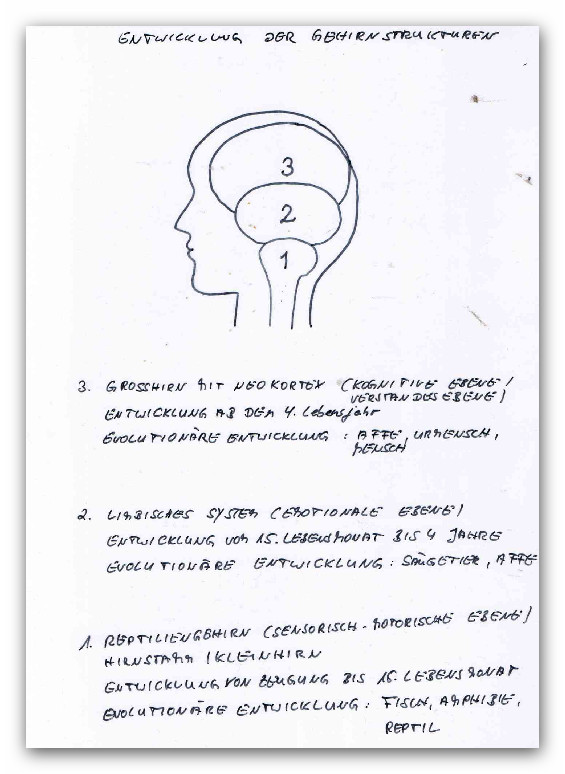 ENTWICKLUNG DER GEHIRNSTRUKTUREN
3
2
1
3. GROSSHIRN MIT NEOKORTEX (KOGNITIVE EBENE/
VERSTANDESEBENE)
ENTWICKLUNG AB DEM 4. Lebensjahr
EVOLUTIONÄRE ENTWICKLUNG : AFFE, URMENSCH,
MENSCH
2. LIMBISCHES SYSTEM (EMOTIONALE EBENE)
ENTWICKLUNG VOM 15. LEBENSMONAT BIS 4 JAHRE
EVOLUTIONÄRE ENTWICKLUNG : SÄUGETIER, AFFE
1. REPTILIENGEHIRN (SENSORISCH-MOTORISCHE EBENE)
HIRNSTAMM / KLEINHIRN
ENTWICKLUNG VON ZEUGUNG BIS 15. LEBENSMONAT
EVOLUTIONÄRE ENTWICKLUNG : FISCH, AMPHIBIE,
REPTIL